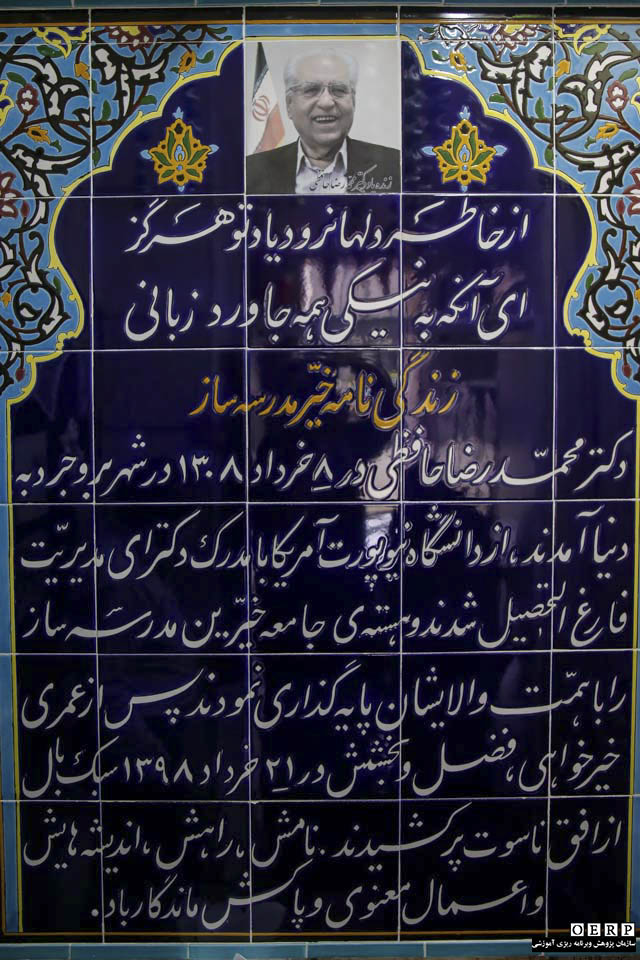 زنده یاد دکتر محمدرضا حافظی
از خاطر دلها نرود یاد تو هرگز
ای آنکه به نیکی همه جا ورد زبانی
زندگی نامه خیّر مدرسه ساز
دکتر محمّدرضا حافظی در ۸ خرداد ۱۳۰۸ در شهر بروجرد به
دنیا آمدند، از دانشگاه نیوپورت آمریکا با مدرک دکترای مدیریّت
فارغ التحصیل شدند و هسته‌ی جامعه خیّرین مدرسه ساز
را با همّت والایشان پایه گذاری نمودند پس از عمری
خیرخواهی، فضل و بخشش در ۲۱ خرداد ۱۳۹۸ سبک بال
از افق ناسوت پرکشیدند. نامش، راهش، اندیشه هایش
و اعمال معنوی و پاکش ماندگار باد.
OERP
سازمان پژوهش وبرنامه ریزی آموزشی